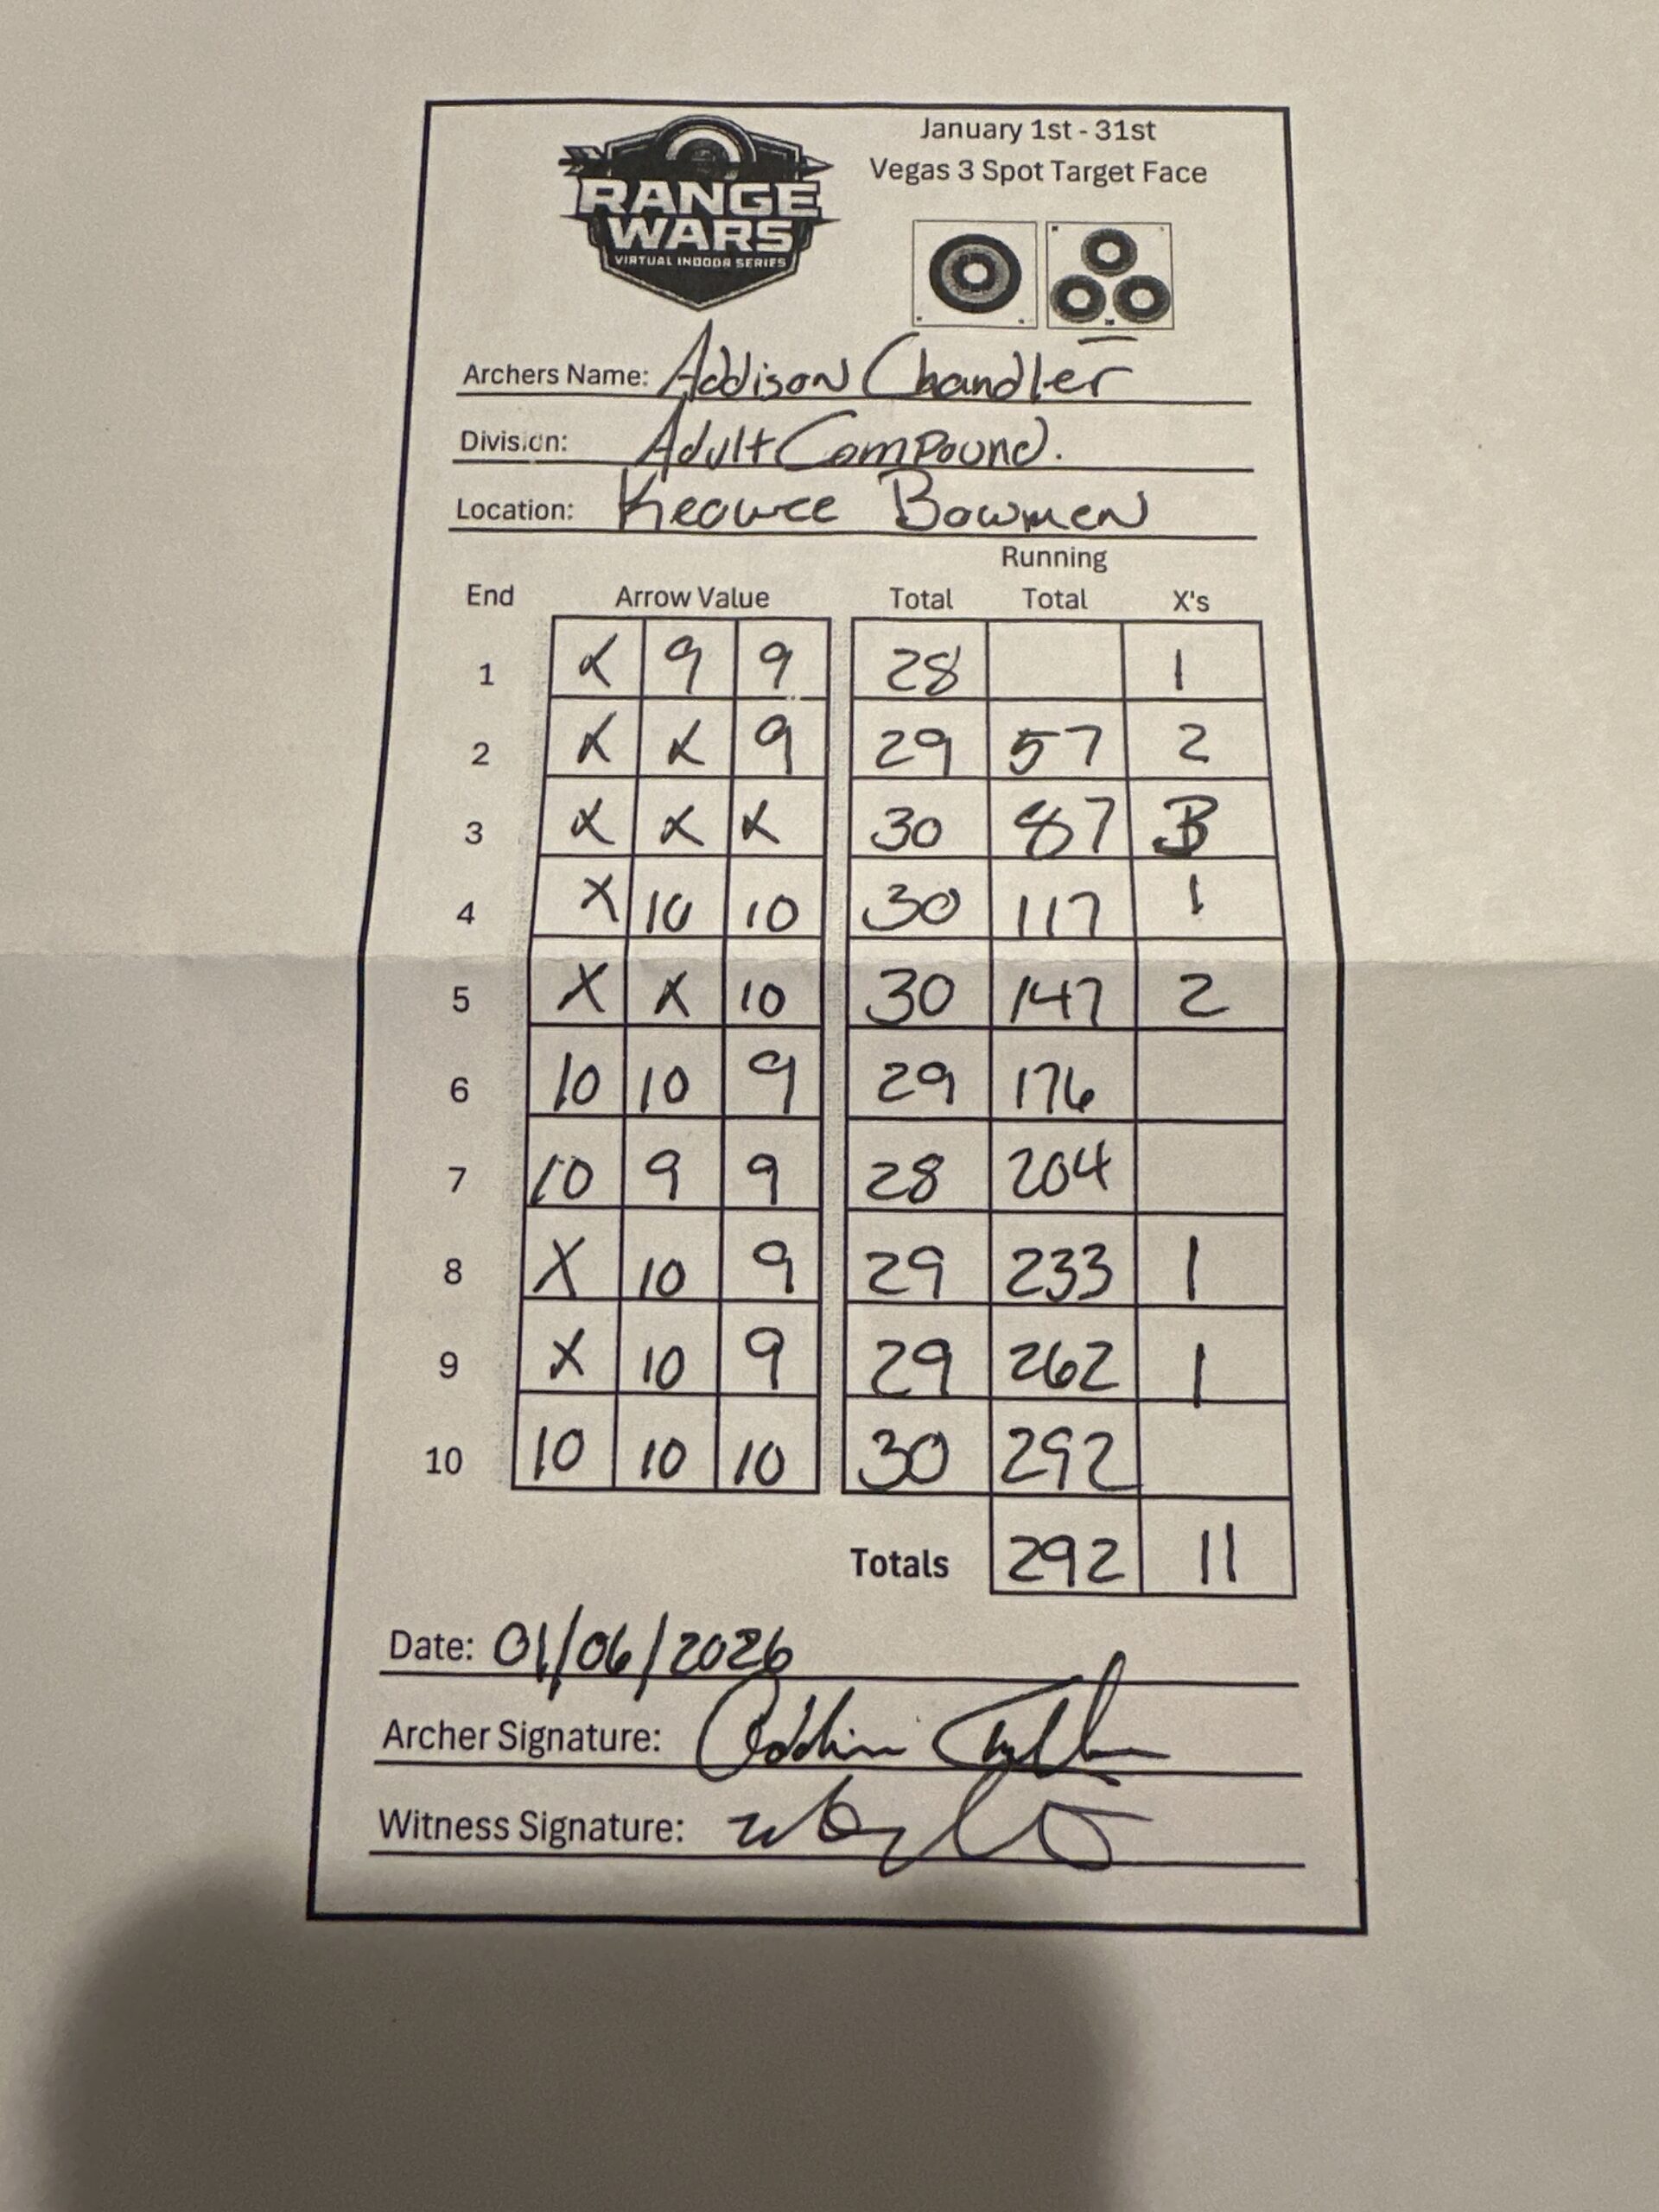 January 1st - 31st
Vegas 3 Spot Target Face
RANGE
WARS
VIRTUAL INDOOR SERIES
Archers Name: Addison Chandler
Division: Adult Compound.
Location: Keowee Bowmen
Running
End Arrow Value Total Total X's
1 X 9 9 28 1
2 X X 9 29 57 2
3 X X X 30 87 3
4 X 10 10 30 117 1
5 X X 10 30 147 2
6 10 10 9 29 176
7 10 9 9 28 204
8 X 10 9 29 233 1
9 X 10 9 29 262 1
10 10 10 10 30 292
Totals 292 11
Date: 01/06/2026
Archer Signature:
Witness Signature: